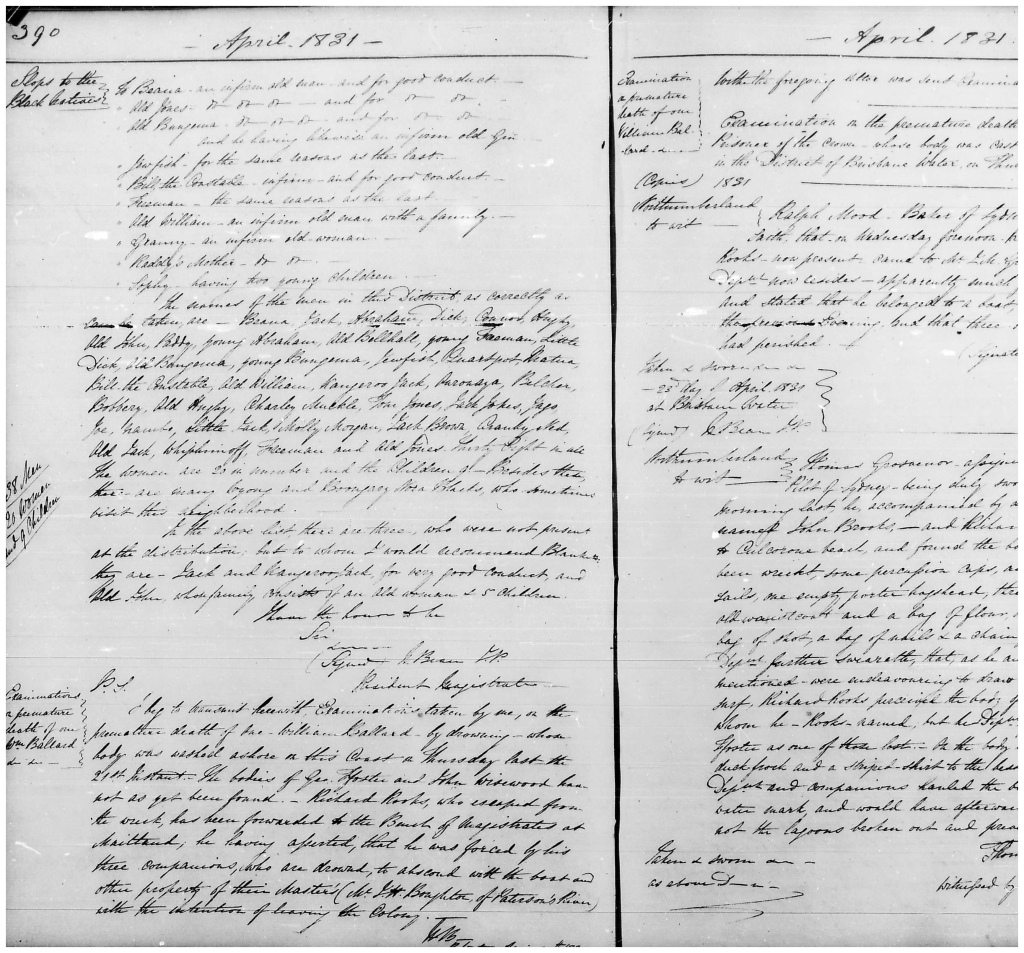 390
— April. 1831 —
Slops to the
Black Natives
To Beana - an infirm old man - and for good conduct —
" Old Jones - Do Do Do — and for Do Do. —
" Old Bungema - Do Do Do — and for Do Do
and he having likewise an infirm old Gin
" Jewfish - for the same reasons as the last. —
" Bill the Constable - infirm - and for good conduct —
" Freeman — the same reasons as the last —
" Old William - an infirm old man with a family. —
" Granny - an infirm old woman. —
" Paddy's Mother - Do Do. —
" Sophy - having two young children. —
The names of the men in this District, as correctly as
can be taken, are — Beana, Jack, Abraham, Dick, Hughy,
Old John, Paddy, young Abraham, Old Bellhall, young Freeman, Little
Dick, Old Bungema, young Bungema, Jewfish,
Bill the Constable, Old William, Kangeroo Jack,
Bobbery, Old Hughy, Charley Muckle, Tom Jones, Jack Jones,
Joe, Little Jack, Molly Morgan, Jack Brown, Ned,
Old Jack, Freeman and Old Jones. Thirty Eight in all
The women are 20 in number and the Children 9. — Besides these,
there are many and Blacks, who sometimes
visit this neighborhood.
38 Men
20 Women
and 9 Children
In the above list there are three, who were not present
at the distribution; but to whom I would recommend
they are - Jack and Kangeroo Jack, for very good conduct, and
Old John, whose family consists of an Old woman & 5 Children.
I have the honor to be
Sir
(Signed) W Bean J.P.
Resident Magistrate
Examinations
on premature
death of one
Wm Ballard
P. S.
I beg to transmit herewith, Examinations taken by me, on the
premature death of one - William Ballard - by drowning - whose
body was washed ashore on this Coast on Thursday last the
21st Instant. The bodies of Geo. Foster and John Wisewood have
not as yet been found. — Richard Rooks, who escaped from
the wreck, has been forwarded to the Bench of Magistrates at
Maitland; he having asserted, that he was forced by his
three companions, who are drowned, to abscond with the boat and
other property of their Master's (Mr. J. H. Boughton, of Paterson's River)
with the intention of leaving the Colony.
WB
— April. 1831.
Examination
a premature
death of one
William Bal-
lard
With the foregoing letter was sent Examina
Examination on the premature death
Prisoner of the crown - whose body was cast
in the District of Brisbane Water, on Thu
1831
(Copies)
Northumberland
to wit
Ralph Mood - Baker of Sydn
Saith, that on Wednesday forenoon
Rooks - now present, came to Mr
Depnt now resides - apparently much
and stated that he belonged to a boat,
the previous Evening, and that three
had perished. +
(Signed
Taken & sworn
25 day of April 1831
at Brisbane Water
(Signed) W Bean J.P.
Northumberland
to wit
Thomas Grosvenor - assigne
Pilot of Sydney - being duly swo
morning last, he, accompanied by a
named John Brooks, — and Richar
to beach, and found the bo
been wreckt, some percussion caps, a
sails, one empty porter hogshead, thre
old waistcoat and a bag of flour,
bag of shot, a bag of nails & a chain
Depnt further sweareth, that, as he an
mentioned - were endeavouring to draw
surf, Richard Rooks perceived the body of
whom he - Rooks - named, but he Depnt
Foster as one of those lost — On the body
duck frock and a striped shirt to the
Depnt and companions hauled the b
water mark, and would have afterwar
not the lagoons broken out and prev
Thom
Taken & sworn
as above
witnessed by